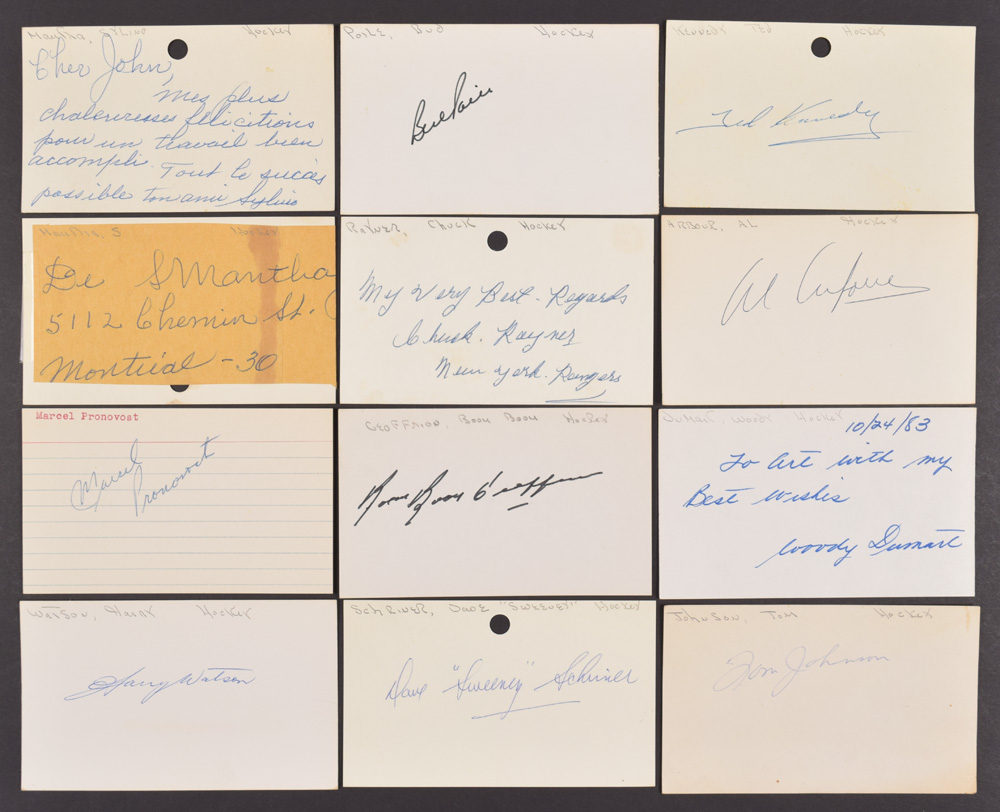 Mantha, Sylvio Hockey
Cher John,
Mes plus
chaleureuses félicitions
pour un travail bien
accompli. Tout le succès
possible ton ami Sylvio
Poile, Bud Hockey
Bud Poile
Kennedy Ted Hockey
Ted Kennedy
Mantha, S Hockey
De S Mantha
5112 Chemin St.
Montréal - 30
Rayner, Chuck Hockey
My Very Best. Regards
Chuck. Rayner
New York. Rangers
Arbour, Al Hockey
Al Arbour
Marcel Pronovost
Marcel
Pronovost
Geoffrion, Boom Boom Hockey
Boom Boom Geoffrion
Dumart, Woody Hockey
10/24/83
To Art with my
Best Wishes
Woody Dumart
Watson, Harry Hockey
Harry Watson
Schriner, Dave "Sweeney" Hockey
Dave "Sweeney" Schriner
Johnson, Tom Hockey
Tom Johnson